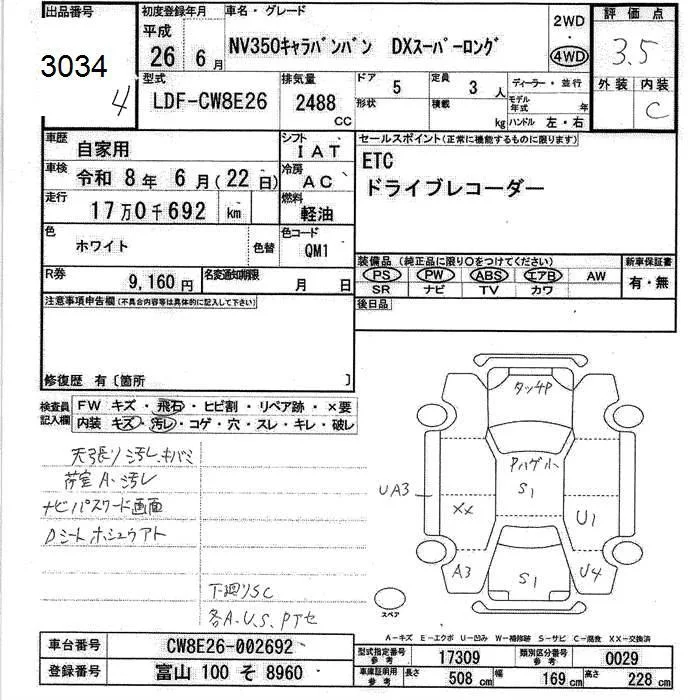 出品番号
3034
4
初度登録年月
平成
26年6月
車名・グレード
NV350キャラバンバン DXスーパーロング
2WD
4WD
評価点
3.5
外装 内装
C
型式
LDF-CW8E26
排気量
2488
CC
ドア
5
定員
3人
ディーラー・並行
形状
積載
kg
モデル年式
年
ハンドル 左・右
車歴
自家用
シフト
IAT
車検
令和 8年 6月(22日)
冷房
AC
走行
17万0千692 km
燃料
軽油
色
ホワイト
色替
色コード
QM1
R券
9,160円
名変通知期限
月 日
セールスポイント(正常に機能するものに限ります)
ETC
ドライブレコーダー
装備品 (純正品に限り○をつけてください)
PS PW ABS エアB AW
SR ナビ TV カワ
新車保証書
有・無
後日品
注意事項申告欄(不具合内容等は具体的に記入して下さい)
修復歴 有〔箇所 〕
検査員記入欄
FW キズ・飛石・ヒビ割・リペア跡・×要
内装 キズ・汚レ・コゲ・穴・スレ・キレ・破レ
天張リ汚レ.キバミ
荷室A.汚レ
ナビパスワード画面
Dシートホシュウアト
下廻リSC
各A.U.S.Pタセ
タッチP
Pハゲ小
S1
UA3
XX
U1
A3
S1
U4
スペア
A-キズ E-エクボ U-凹み W-補修跡 S-サビ C-腐食 XX-交換済
車台番号
CW8E26-002692
登録番号
富山 100 そ 8960
型式指定番号
参考
17309
類別区分番号
参考
0029
車庫証明用
参考
長さ
508 cm
幅
169 cm
高さ
228 cm